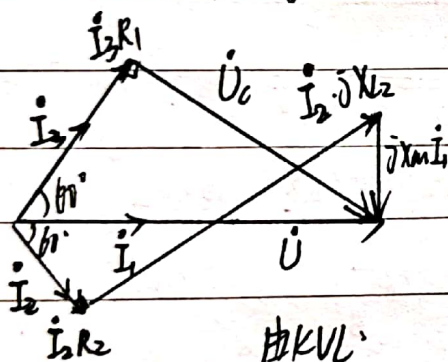 İ₃R₁
U̇c
İ₂·jXL₂
İ₃
jXmİ₁
60°
60°
İ₁
U̇
İ₂
İ₂R₂
由KVL: